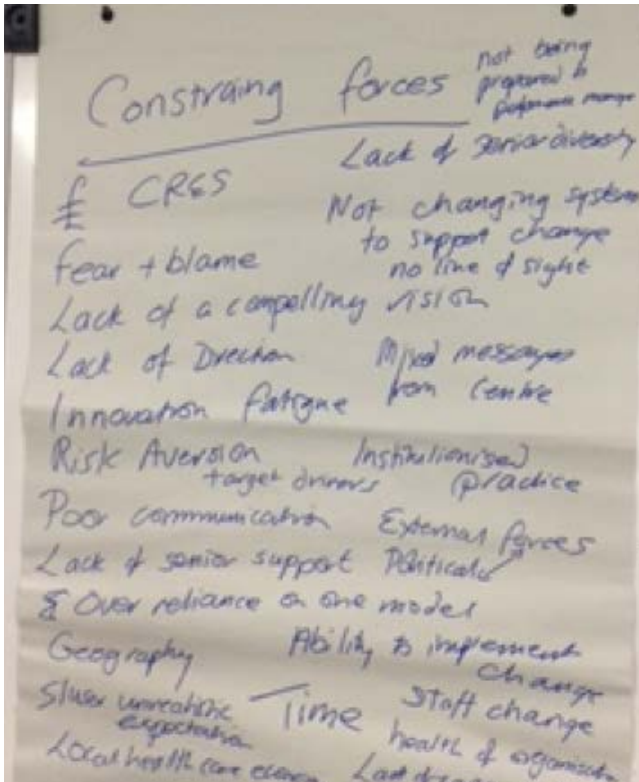 Constraing forces
not being
prepared to
performance manage
Lack of senior diversity
£ CRES
Not changing system
to support change
no line of sight
fear + blame
Lack of a compelling vision
Lack of Direction
Mixed messages
from Centre
Innovation fatigue
Risk Aversion
target drivers
Institutionised
practice
Poor communication
External forces
Political
Lack of senior support
Over reliance on one model
Geography
Ability to implement
change
S/user unrealistic
expectation
Time
Staff change
health of organisation
Local health care